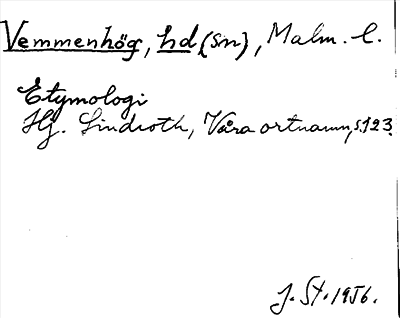 Vemmenhög, hd, (sn), Malm. l.
Etymologi
Hj. Lindroth, Våra ortnamn, s. 123.
J. St. 1956.